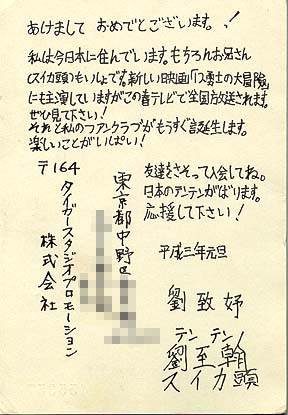 あけまして おめでとございます。!
私は今日本に住んでいます。もちろんお兄さん
(スイカ頭)もいしょです。新しい映画「7勇士の大冒険」
にも主演していますがこの春テレビで全国方送されます。
ぜひ見て下さい!
それと私のファンクラブがもうすぐ誕生します。
楽しいことがいぱい!
友達をさそって入会してね。
日本のテンテンがばります。
応援して下さい!
平成三年元旦
劉致妤
テンテン
劉至翰
スイカ頭
〒164
東京都中野区
タイガースタジオプロモーション
株式会社